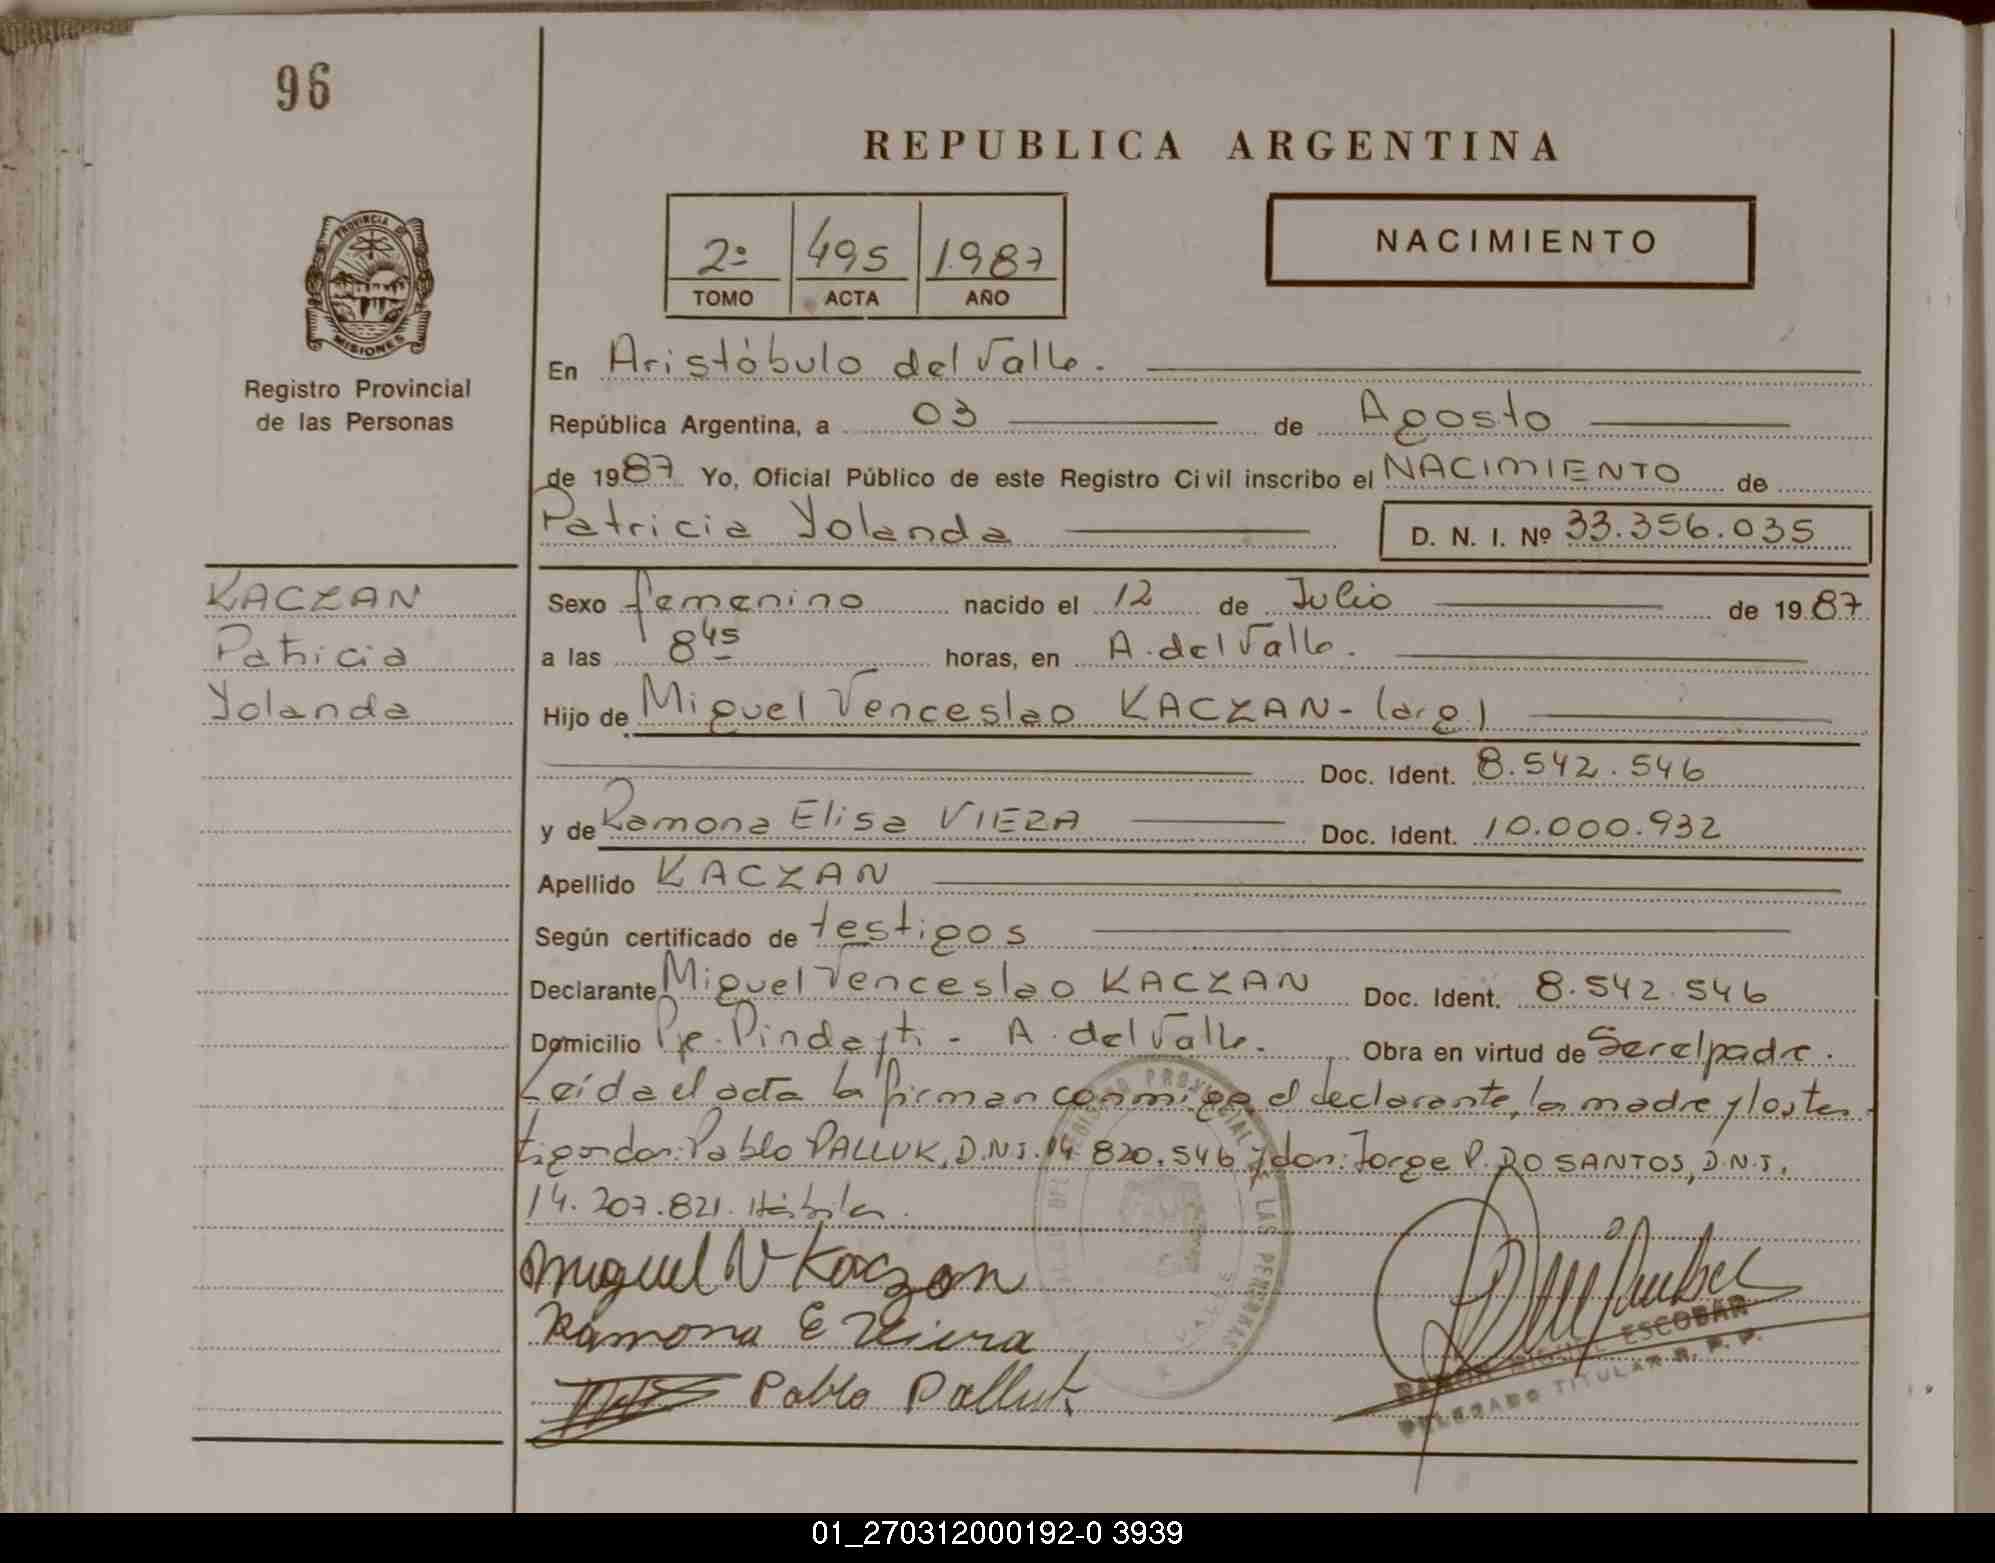 96
REPUBLICA ARGENTINA
PROVINCIA DE
MISIONES
Registro Provincial
de las Personas
2º 495 1.987
TOMO ACTA AÑO
NACIMIENTO
En Aristóbulo del Valle.
República Argentina, a 03 de Agosto
de 1987. Yo, Oficial Público de este Registro Civil inscribo el NACIMIENTO de
Patricia Yolanda D. N. I. Nº 33.356.035
KACZAN
Patricia
Yolanda
Sexo femenino nacido el 12 de Julio de 1987
a las 8 45 horas, en A. del Valle.
Hijo de Miguel Venceslao KACZAN - (arg)
Doc. Ident. 8.542.546
y de Ramona Elisa VIERA Doc. Ident. 10.000.932
Apellido KACZAN
Según certificado de testigos
Declarante Miguel Venceslao KACZAN Doc. Ident. 8.542.546
Domicilio Pje. Pindayti - A. del Valle. Obra en virtud de Ser el padre.
Leída el acta la firman conmigo el declarante, la madre y los tes
tigos don: Pablo PALLUK, D.N.I. 14.820.546 y don: Jorge P. DO SANTOS, D.N.I.
14.207.821. Hábiles.
Miguel V Kaczan
Ramona E Viera
Pablo Palluk
REGISTRO PROVINCIAL DE LAS PERSONAS
RAMON MIGUEL ESCOBAR
DELEGADO TITULAR R. P. P.
01_270312000192-0 3939